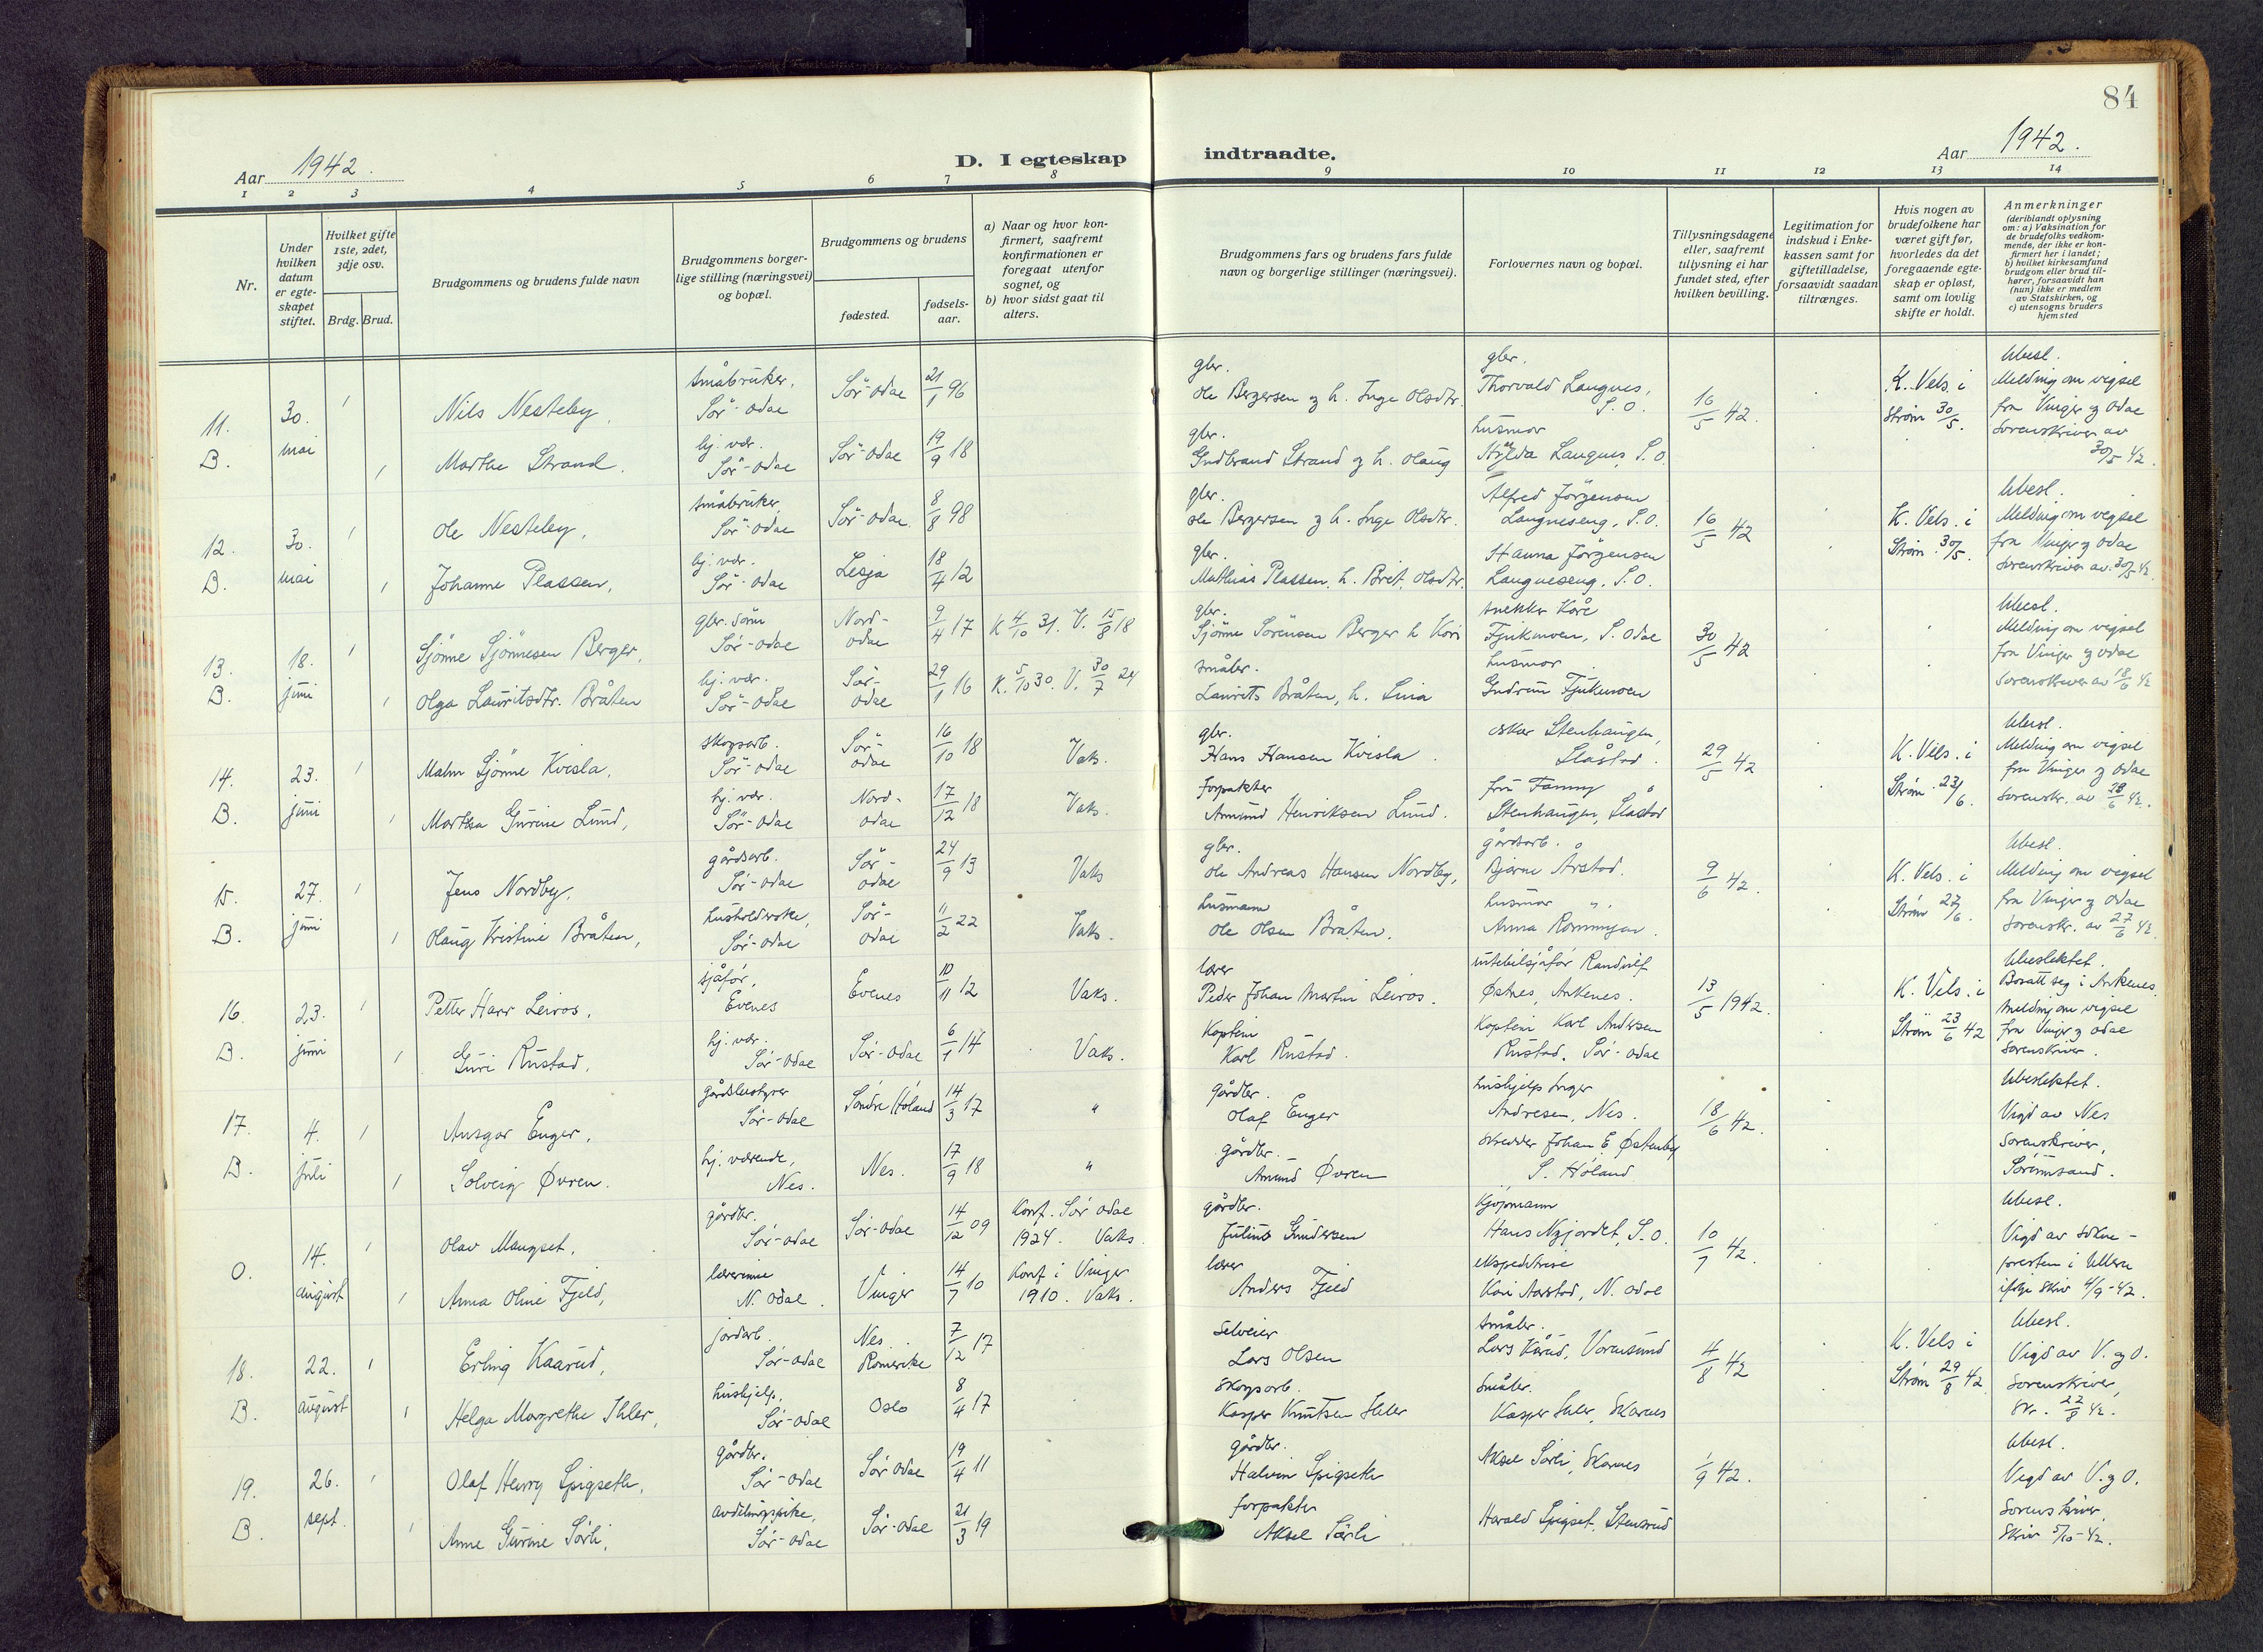 84
Aar 1942.
D. I egteskap indtraadte.
Aar 1942.
1 2 3 4 5 6 7 8 9 10 11 12 13 14
Nr.
Under hvilken datum er egteskapet stiftet.
Hvilket gifte 1ste, 2det, 3dje osv.
Brdg. Brud.
Brudgommens og brudens fulde navn
Brudgommens borgerlige stilling (næringsvei) og bopæl.
Brudgommens og brudens
fødested.
fødselsaar.
a) Naar og hvor konfirmert, saafremt konfirmationen er foregaat utenfor sognet, og
b) hvor sidst gaat til alters.
Brudgommens fars og brudens fars fulde navn og borgerlige stillinger (næringsvei).
Forlovernes navn og bopæl.
Tillysningsdagene eller, saafremt tillysning ei har fundet sted, efter hvilken bevilling.
Legitimation for indskud i Enkekassen samt for giftetilladelse, forsaavidt saadan tiltrænges.
Hvis nogen av brudefolkene har været gift før, hvorledes da det foregaaende egteskap er opløst, samt om lovlig skifte er holdt.
Anmerkninger
(deriblandt oplysning om: a) Vaksination for de brudefolks vedkommende, der ikke er konfirmert her i landet; b) hvilket kirkesamfund brudgom eller brud tilhører, forsaavidt han (hun) ikke er medlem av Statskirken, og c) utensogns bruders hjemsted
11. 30. mai 1 Nils Nesteby, småbruker, Sør-Odal Sør-Odal 21/1 96 gbr. Ole Bergersen og h. Inge Olsdtr. gbr. Thorvald Langnes, S.O. 16/5 42. K. Vels. i Strøm 30/5. Ubesl. Meldning om vigsel fra Vinger og Odal Sorenskriver av 30/5 42.
B. 1 Marthe Strand. hj. vær. Sør-Odal Sør-Odal 19/9 18 gbr. Gudbrand Strand og h. Olaug husmor Hilda Langnes, S.O.
12. 30. mai 1 Ole Nesteby, småbruker, Sør-Odal Sør-Odal 8/8 98 gbr. Ole Bergersen og h. Inge Olsdtr. Alfred Jørgensen Langneseng, S.O. 16/5 42 K. Vels. i Strøm 30/5. Ubesl. Meldnig om vigsel fra Vinger og Odal Sorenskriver av 30/5 42.
B. 1 Johanne Plassen, hj. vær. Sør-Odal Lesja 18/4 12 gbr. Mathias Plassen, h. Brit Olsdtr. Hanna Jørgensen Langneseng, S.O.
13. 18. juni 1 Sjønne Sjønnesen Berger, gbr. sønn Sør-Odal Nord-Odal 9/4 17 K 4/10 31. V. 15/8 18 gbr. Sjønne Sørensen Berger h Kari snekker Kåre Fjukmoen, S. Odal 30/5 42 Ubesl. Meldning om vigsel fra Vinger og Odal Sorenskriver av 18/6 42
B. 1 Olga Lauritsdtr. Bråten hj. vær. Sør-Odal Sør-Odal 29/1 16 K. 5/10 30. V. 30/7 24 småbr. Laurits Bråten, h. Lina husmor Gudrun Fjukmoen
14. 23. juni 1 Malm Sjønne Kvisla, skogsarb. Sør-Odal Sør-Odal 16/10 18 Vaks. gbr. Hans Hansen Kvisla. Oskar Stenhaugen, Slåstad. 29/5 42 K. Vels. i Strøm 23/6. Ubesl. Meldning om vigsel fra Vinger og Odal Sorenskr. av 23/6 42.
B. 1 Martha Gurine Lund, hj. vær. Sør-Odal Nord-Odal 17/12 18 Vaks. forpakter Amund Henriksen Lund. fru Fanny Stenhaugen, Slåstad
15. 27. juni 1 Jens Nordby, gårdsarb. Sør-Odal Sør-Odal 24/9 13 Vaks gbr. Ole Andreas Hansen Nordby, gårdsarb. Bjarne Årstad. 9/6 42. K. Vels. i Strøm 27/6. Ubesl. Meldning om vigsel fra Vinger og Odal Sorenskr. av 27/6 42.
B. 1 Olaug Kristine Bråten, husholderske, Sør-Odal Sør-Odal 11/2 22 Vaks. husmann Ole Olsen Bråten. husmor Anna Rønningen.
16. 23. juni 1 Petter Harr Leiros, sjåfør, Evenes Evenes 10/11 12 Vaks. lærer Peder Johan Martin Leiros. rutebilsjåfør Randulf Østnes, Ankenes. 13/5 1942. K. Vels. i Strøm 23/6 42 Ubeslektet. Bosatt seg i Ankenes. Meldnig om vigsel fra Vinger og Odal Sorenskriver.
B. 1 Guri Rustad, hj. vær. Sør-Odal Sør-Odal 6/1 14 Vaks. Kaptein Karl Rustad. Kaptein Karl Andersen Rustad. Sør-Odal
17. 4. juli 1 Ansgar Enger, gårdsbestyrer Sør-Odal Søndre Høland 14/3 17 " gårdbr. Olaf Enger hushjelp Inger Andresen, Nes. 18/6 42. Ubeslektet. Vigd av Nes Sorenskriver, Sørumsand.
B. 1 Solveig Øvren. hj. værende, Nes. Nes. 17/9 18 " gårdbr. Amund Øvren skredder Johan E. Østenby S. Høland
O. 14. august 1 Olav Mangset, gårdbr. Sør-Odal Sør-Odal 14/12 09 Konf. Sør Odal 1924. Vaks. gårdbr. Julius Gundersen Kjøpmann Hans Nyjordet, S.O. 10/7 42. Ubesl. Vigd av soknepresten i Ullern ifølge skriv 4/9-42.
1 Anna Oline Fjeld, lærerinne N. Odal. Vinger 14/7 10 Konf i Vinger 1910. Vaks. lærer Anders Fjeld ekspeditrise Kari Aarstad, N. Odal
18. 22. august 1 Erling Kaarud, jordarb. Sør-Odal Nes Romerike 7/12 17 Selveier Lars Olsen småbr. Lars Kårud, Vormsund 4/8 42 K. Vels i Strøm 29/8 42 Ubesl. Vigd av V. og O. Sorenskriver, Skr. 22/8 42.
B. 1 Helga Margrethe Ihler, hushjelp, Sør-Odal Oslo 8/4 17 Skogsarb. Kasper Knutsen Ihler Småbr. Kasper Ihler, Skarnes
19. 26. sept. 1 Olaf Henry Spigseth, gårdbr. Sør-Odal Sør Odal 19/4 11 gårdbr. Halvin Spigseth Aksel Sørli, Skarnes 1/9 42. Ubesl. Vigd av V. og O. Sorenskriver, Skriv 5/10-42.
B. 1 Anne Gurine Sørli, avdelingspike, Sør-Odal Sør-Odal 21/3 19 forpakter Aksel Sørli Harald Spigset, Stensrud